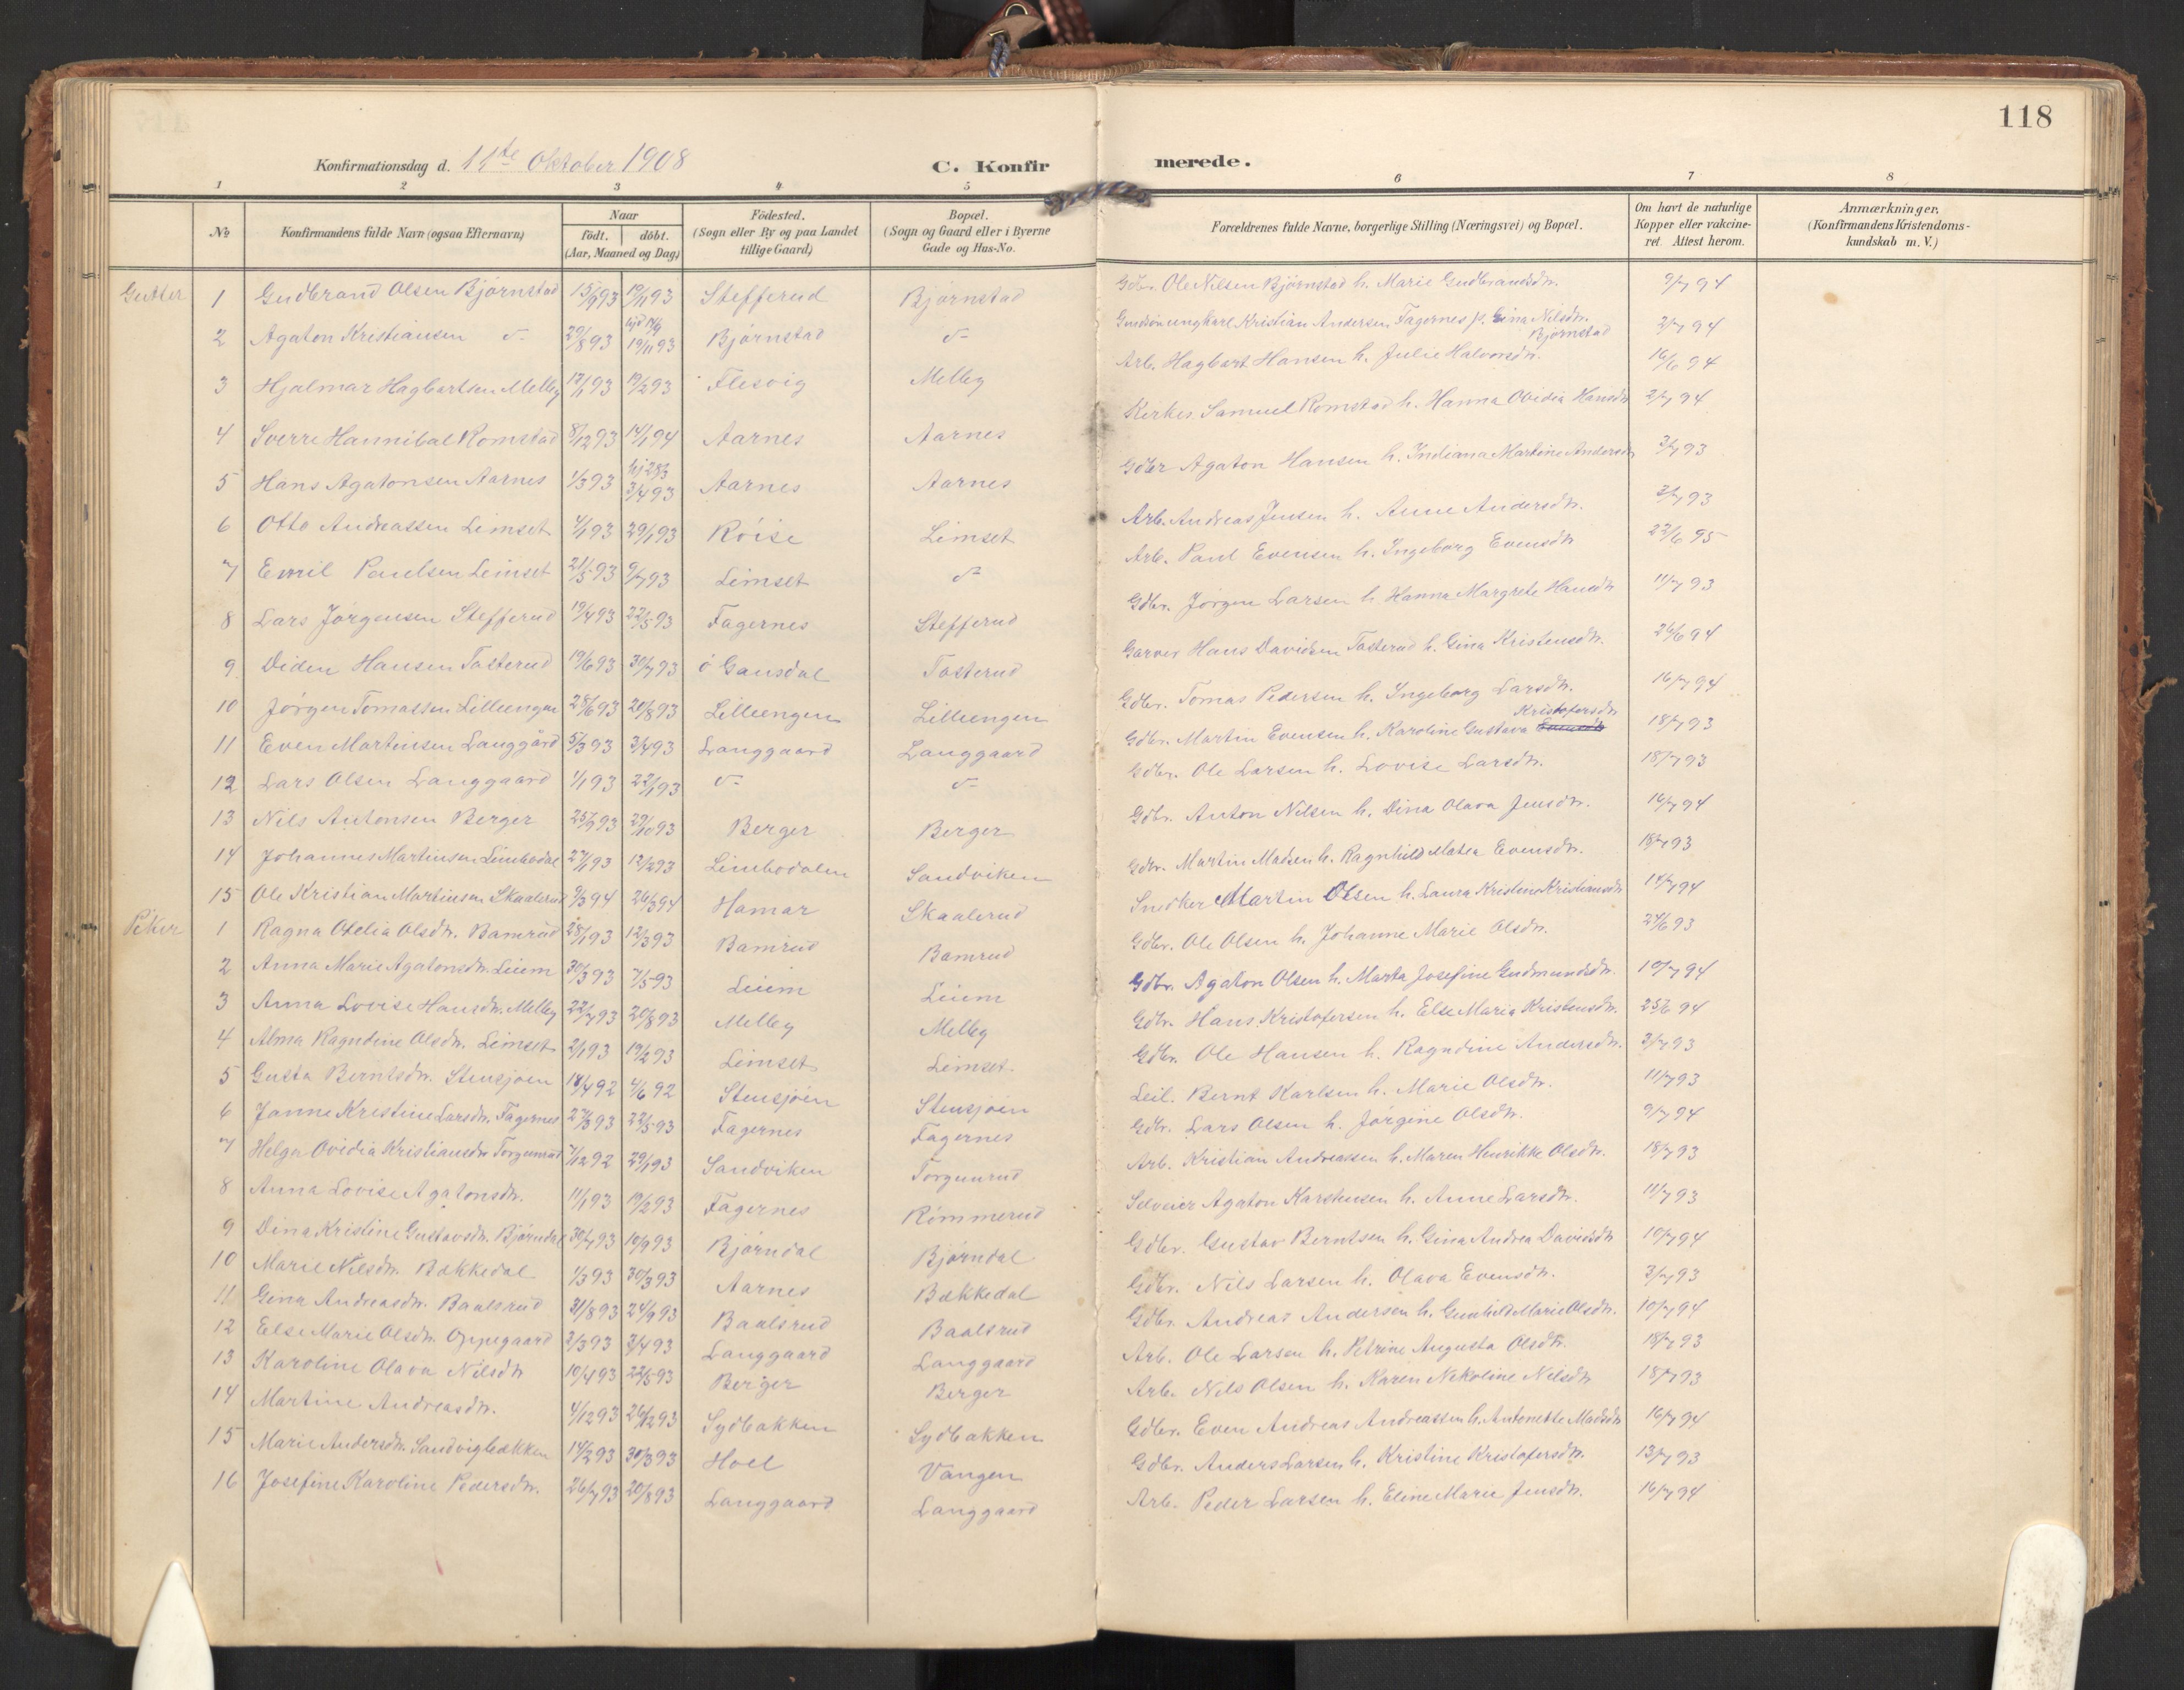 118
Konfirmationsdag d. 11te Oktober 1908
C. Konfirmerede.
1 2 3 4 5 6 7 8
No
Konfirmandens fulde Navn (ogsaa Efternavn)
Naar
födt. döbt.
(Aar, Maaned og Dag)
Födested.
(Sogn eller By og paa Landet
tillige Gaard)
Bopæl.
(Sogn og Gaard eller i Byerne
Gade og Hus-No.
Forældrenes fulde Navne, borgerlige Stilling (Næringsvei) og Bopæl.
Om havt de naturlige
Kopper eller vakcine-
ret. Attest herom.
Anmærkninger.
(Konfirmandens Kristendoms-
kundskab m. V.)
Gutter 1 Gudbrand Olsen Bjørnstad 15/9 93 19/11 93 Stefferud Bjørnstad Gdbr. Ole Nilsen Bjørnstad h. Marie Gudbrandsdtr. 9/7 94
2 Agaton Kristiansen 29/8 93 19/11 93 Bjørnstad Kristian Andersen Fagernes p. Gina Nilsdtr. Bjørnstad 2/7 94
3 Hjalmar Hagbartsen Melby 12/1 93 19/2 93 Flesvig Melby Arb. Hagbart Hansen h. Julie Halvorsdtr. 16/6 94
4 Sverre Hannibal Romstad 8/12 93 14/1 94 Aarnes Aarnes Kirkes. Samuel Romstad h. Hanna Ovidia Hansdtr 2/7 94
5 Hans Agatonsen Aarnes 1/3 93 3/4 93 Aarnes Aarnes Gdbr Agaton Hansen h. Indiana Martine Andersdtr 3/7 93
6 Otto Andreassen Limset 4/1 93 29/1 93 Röise Limset Arb. Andreas Jensen h. Anne Andersdtr. 3/7 93
7 Emil Paulsen Limset 21/5 93 9/7 93 Limset Arb. Paul Evensen h. Ingeborg Evensdtr 22/6 95
8 Lars Jørgensen Stefferud 19/4 93 22/5 93 Fagernes Stefferud Gdbr. Jørgen Larsen h. Hanna Margrete Hansdtr 11/7 93
9 Diden Hansen Tasterud 19/6 93 30/7 93 ö Gausdal Tasterud Garver Hans Davidsen Tasterud h. Gina Kristensdtr. 26/6 94
10 Jørgen Tomassen Lilleengen 28/6 93 20/8 93 Lilleengen Lilleengen Gdbr. Tomas Pedersen h. Ingeborg Larsdtr. 16/7 94
11 Even Martinsen Langgård 5/3 93 3/4 93 Langgaard Langgaard Gdbr. Martin Evensen h. Karoline Gustava Kristofersdtr 18/7 93
12 Lars Olsen Langgaard 1/1 93 22/1 93 Gdbr. Ole Larsen h. Lovise Larsdtr. 18/7 93
13 Nils Antonsen Berger 25/9 93 29/10 93 Berger Berger Gdbr. Anton Nilsen h. Dina Olava Jensdtr. 16/7 94
14 Johannes Martinsen Limbodal 27/1 93 12/2 93 Limbodalen Sandviken Gdbr. Martin Madsen h. Ragnhild Matea Evensdtr. 18/7 93
15 Ole Kristian Martinsen Skaalerud 9/3 94 26/3 94 Hamar Skaalerud Snedker Martin Olsen h. Laura Kristine Kristiansdtr 14/7 94
Piker 1 Ragna Otelia Olsdtr. Bamrud 28/1 93 12/3 93 Bamrud Bamrud Gdbr. Ole Olsen h. Johanne Marie Olsdtr. 24/6 93
2 Anna Marie Agatonsdtr. Liem 30/3 93 7/5 93 Liem Liem Gdbr. Agaton Olsen h. Marta Josefine Gudmundsdtr. 10/7 94
3 Anna Lovise Hansdtr. Melby 22/7 93 20/8 93 Melby Melby Gdbr. Hans Kristofersen h. Else Maria Kristensdtr. 25/6 94
4 Alma Ragndine Olsdtr. Limset 2/1 93 19/2 93 Limset Limset Gdbr. Ole Hansen h. Ragndine Andersdtr. 3/7 93
5 Gusta Berntsdtr. Stensjøen 18/4 92 4/6 92 Stensjöen Stensjöen Leil. Bernt Karlsen h. Marie Olsdtr. 11/7 93
6 Janne Kristine Larsdtr. Fagernes 27/3 93 22/5 93 Fagernes Fagernes Gdbr. Lars Olsen h. Jørgine Olsdtr. 9/7 94
7 Helga Ovidia Kristiansdtr Torgunrud 7/12 92 29/1 93 Sandviken Torgunrud Arb. Kristian Andreassen h. Maren Henrikke Olsdtr. 18/7 93
8 Anna Lovise Agatonsdtr. 11/1 93 19/2 93 Fagernes Römmerud Selveier Agaton Karstensen h. Anne Larsdtr. 11/7 93
9 Dina Kristine Gustavsdtr. Bjørndal 30/7 93 10/9 93 Bjørndal Bjørndal Gdbr. Gustav Berntsen h. Gina Andrea Davidsdtr 10/7 94
10 Marie Nilsdtr. Bækkedal 1/3 93 30/3 93 Aarnes Bækkedal Gdbr. Nils Larsen h. Olava Evensdtr. 3/7 93
11 Gina Andreasdtr. Baalsrud 31/8 93 24/9 93 Baalsrud Baalsrud Gdbr. Andreas Andersen h. Gunhild Marie Olsdtr. 10/7 94
12 Else Marie Olsdtr. Oppegaard 2/3 93 3/4 93 Langgaard Langgaard Arb. Ole Larsen h. Petrine Augusta Olsdtr. 18/7 93
13 Karoline Olava Nilsdtr 10/4 93 22/5 93 Berger Berger Arb. Nils Olsen h. Karen Nekoline Nilsdtr 18/7 93
14 Martine Andreasdtr. 4/12 93 26/12 93 Sydbakken Sydbakken Gdbr. Even Andreas Andreassen h. Antonette Madsdtr 16/7 94
15 Marie Andersdtr. Sandvigbakken 14/2 93 30/3 93 Hoel Vangen Gdbr. Anders Larsen h. Kristine Kristofersdtr. 13/7 93
16 Josefine Karoline Pedersdtr. 26/7 93 20/8 93 Langgaard Langgaard Arb. Peder Larsen h. Eline Marie Jensdtr. 16/7 94